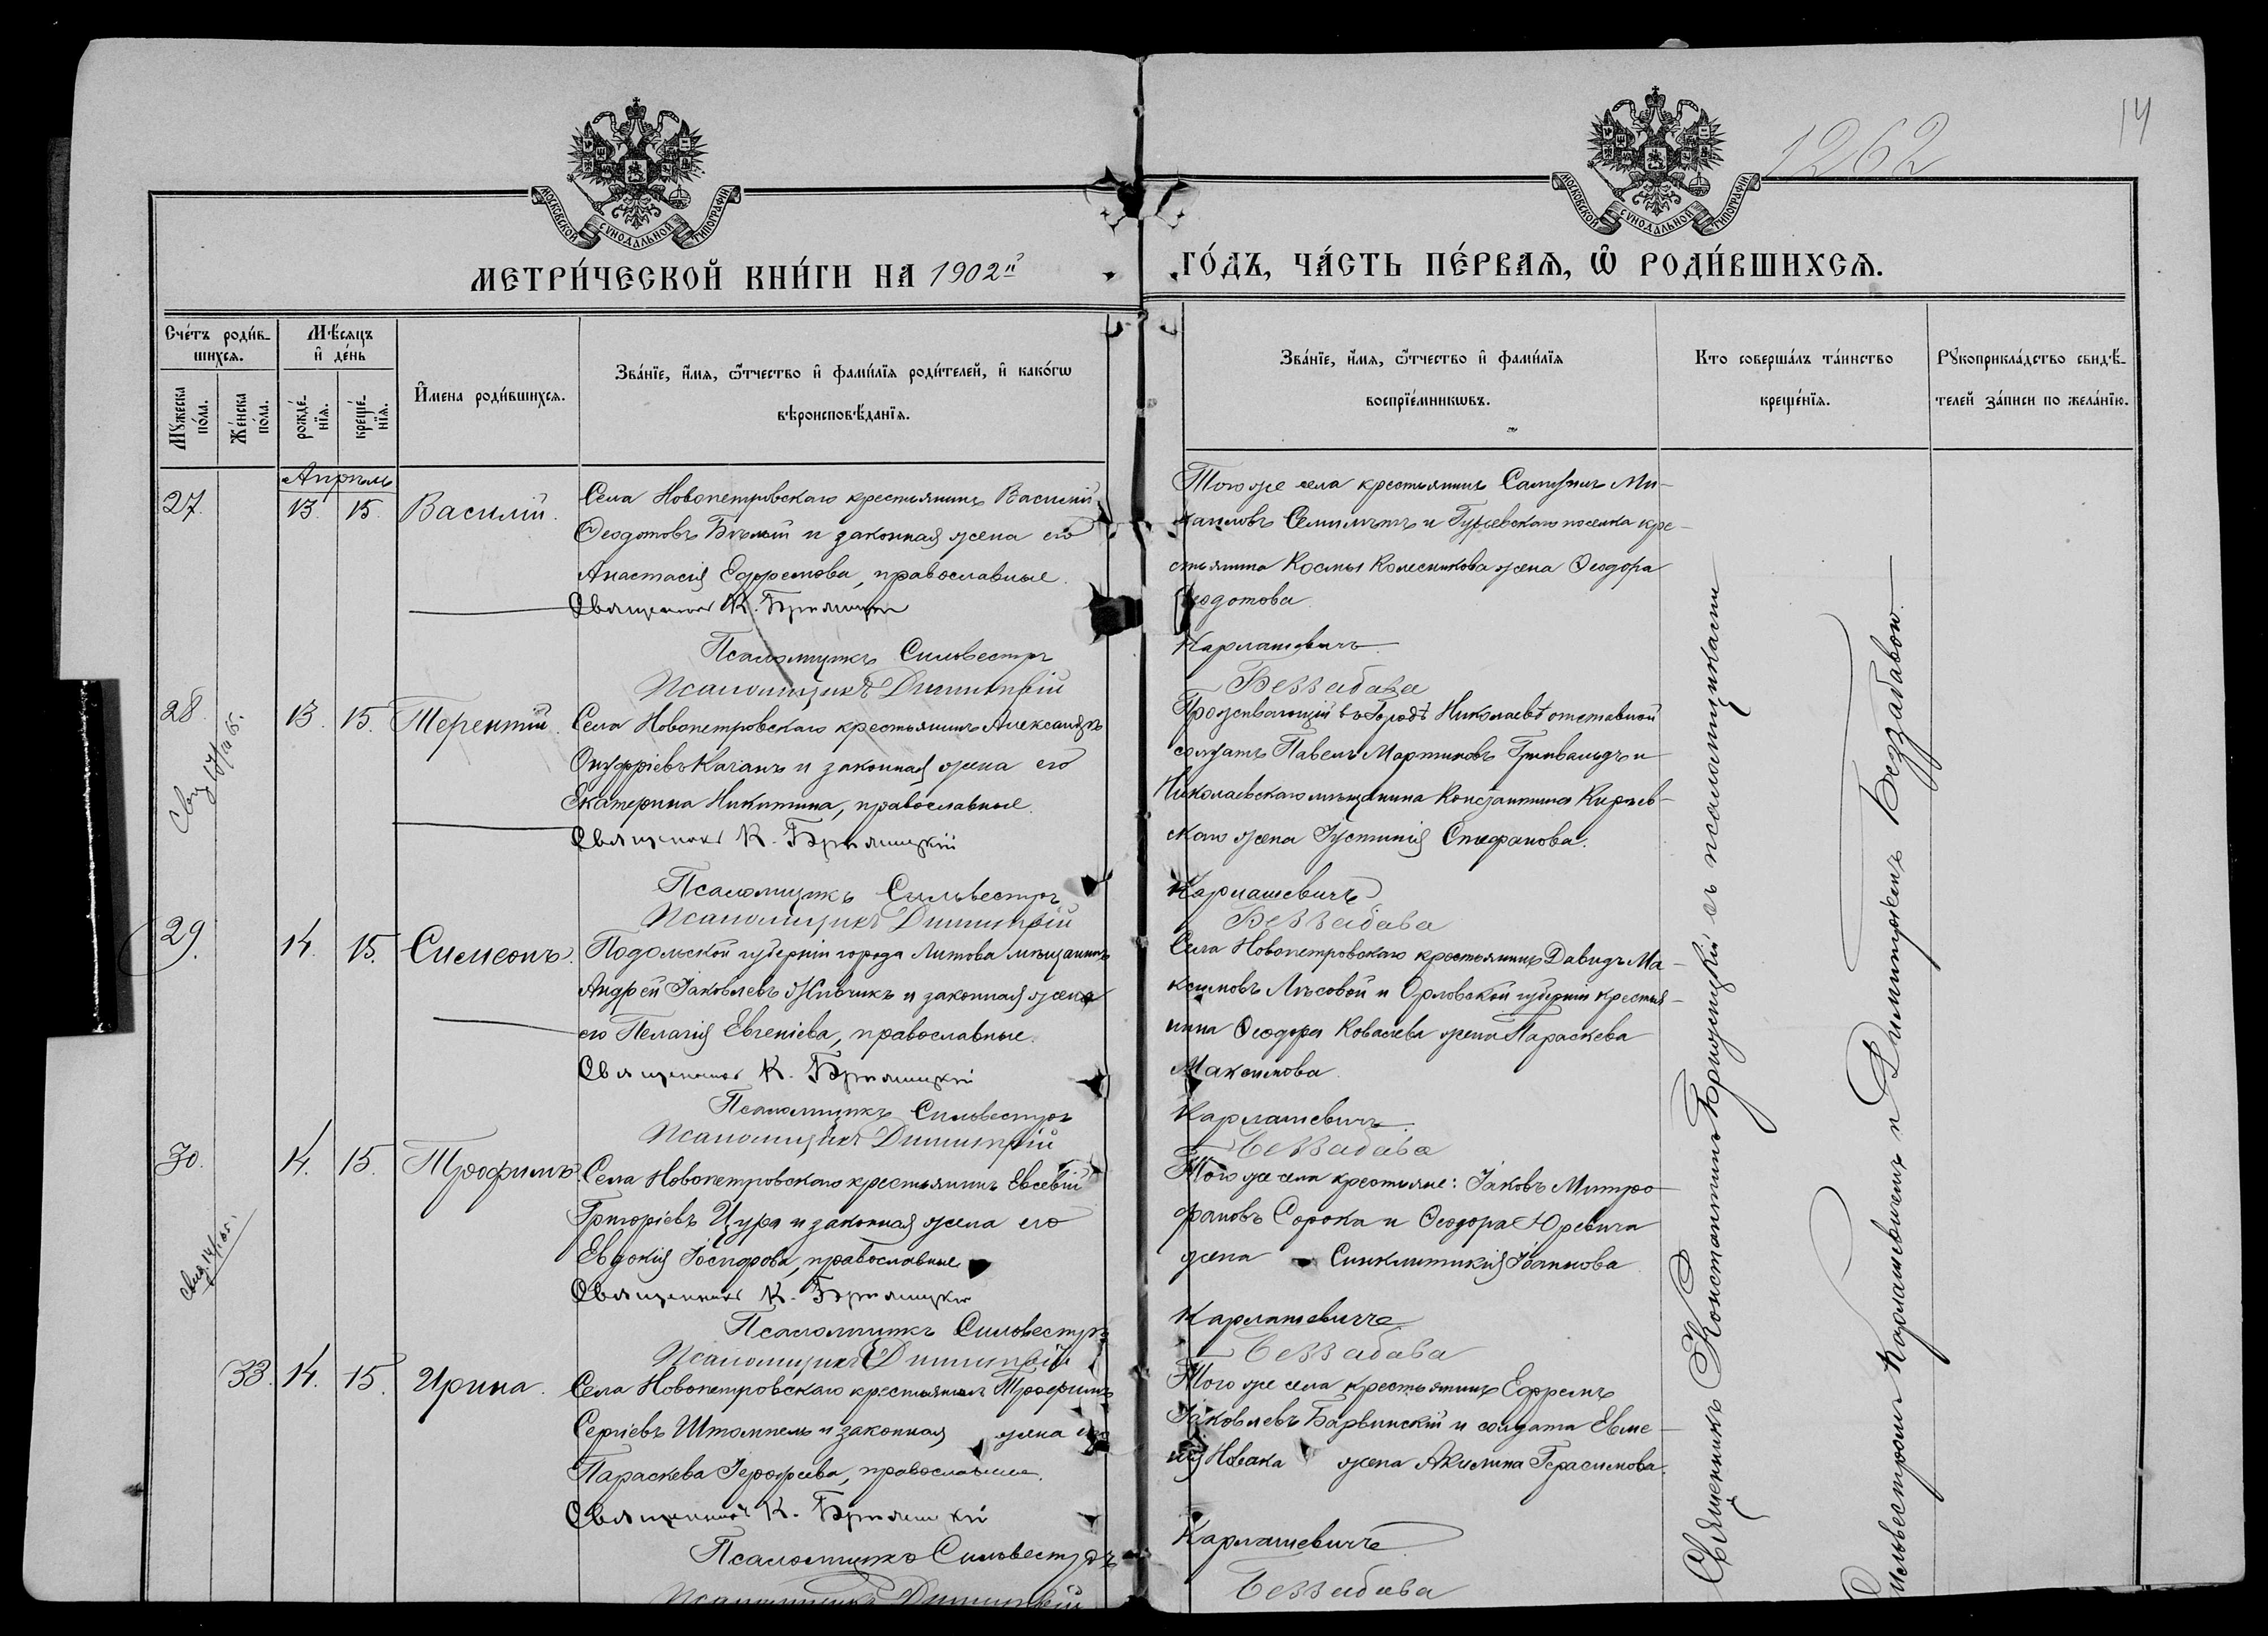 1262
14
МОСКОВСКОЙ СѴНОДАЛЬНОЙ ТИПОГРАФІИ
МОСКОВСКОЙ СѴНОДАЛЬНОЙ ТИПОГРАФІИ
МЕТРИ́ЧЕСКОЙ КНИ́ГИ НА 1902й
ГО́ДЪ, ЧА́СТЬ ПЕ́РВАѦ, Ѽ РОДИ́ВШИХСѦ.
Сче́тъ роди́в-
шихсѧ.
Мꙋ́жеска по́ла.
Же́нска по́ла.
Мѣ́сѧцъ
и҆ де́нь
рожде́-
нїѧ.
креще́-
нїѧ.
И҆мена роди́вшихсѧ.
Зва́нїе, и҆́мѧ, ѻ҆́тчество и҆ фами́лїѧ роди́телей, и҆ како́гѡ
вѣроисповѣ́данїѧ.
Зва́нїе, и҆́мѧ, ѻ҆́тчество и҆ фами́лїѧ
воспрїе́мникѡвъ.
Кто соверша́лъ та́инство
креще́нїѧ.
Рꙋкоприкла́дство свидѣ́-
телей за́писи по жела́нїю.
Апрѣль
27. 13. 15. Василій.
Села Новопетровскаго крестьянинъ Василій
Ѳеодотовъ Бѣлый и законная жена его
Анастасія Ефремова, православные.
Священникъ К. Бржезицкій
Псаломщикъ Сильвестръ
Псаломщикъ Димитрій
Того же села крестьянинъ Самуилъ Ми-
хаиловъ Семилѣтъ и Гурьевскаго поселка кре-
стьянина Космы Колесникова жена Ѳеодора
Ѳеодотова.
Карлашевичъ
Беззабава
28. 13. 15. Терентій.
Села Новопетровскаго крестьянинъ Александръ
Онуфріевъ Качанъ и законная жена его
Екатерина Никитина, православные.
Священникъ К. Бржезицкій
Псаломщикъ Сильвестръ
Псаломщикъ Димитрій
Проживающій въ городѣ Николаевѣ отставной
солдатъ Павелъ Мартиновъ Гринвальдъ и
Николаевскаго мѣщанина Константина Кирѣев-
скаго жена Іустинія Стефанова.
Карлашевичъ
Беззабава
29. 14. 15. Симеонъ.
Подольской губерніи города Литова мѣщанинъ
Андрей Іаковлевъ Живчикъ и законная жена
его Пелагія Евгеніева, православные.
Священникъ К. Бржезицкій
Псаломщикъ Сильвестръ
Псаломщикъ Димитрій
Села Новопетровскаго крестьянинъ Давидъ Ма-
ксимовъ Лѣсовой и Орловской губерніи крестья-
нина Ѳеодора Ковалева жена Параскева
Максимова.
Карлашевичъ
Беззабава
30. 14. 15. Трофимъ.
Села Новопетровскаго крестьянинъ Евсевій
Григоріевъ Цура и законная жена его
Евдокія Іосифова, православные
Священникъ К. Бржезицкій
Псаломщикъ Сильвестръ
Псаломщикъ Димитрій
Того же села крестьяне: Іаковъ Митро-
фановъ Сорока и Ѳеодора Юревича
жена Синклитикія Іоаннова
Карлашевичъ
Беззабава
33. 14. 15. Ирина.
Села Новопетровскаго крестьянинъ Трофимъ
Сергіевъ Штомпель и законная жена его
Параскева Іероѳеева, православные.
Священникъ К. Бржезицкій
Псаломщикъ Сильвестръ
Псаломщикъ Димитрій
Того же села крестьянинъ Ефремъ
Іаковлевъ Барвинскій и солдата Евме-
нія Новака жена Акилина Герасимова.
Карлашевичъ
Беззабава
Священникъ Константинъ Бржезицкій съ псаломщиками
Сильвестромъ Карлашевичемъ и Димитріемъ Беззабавою.